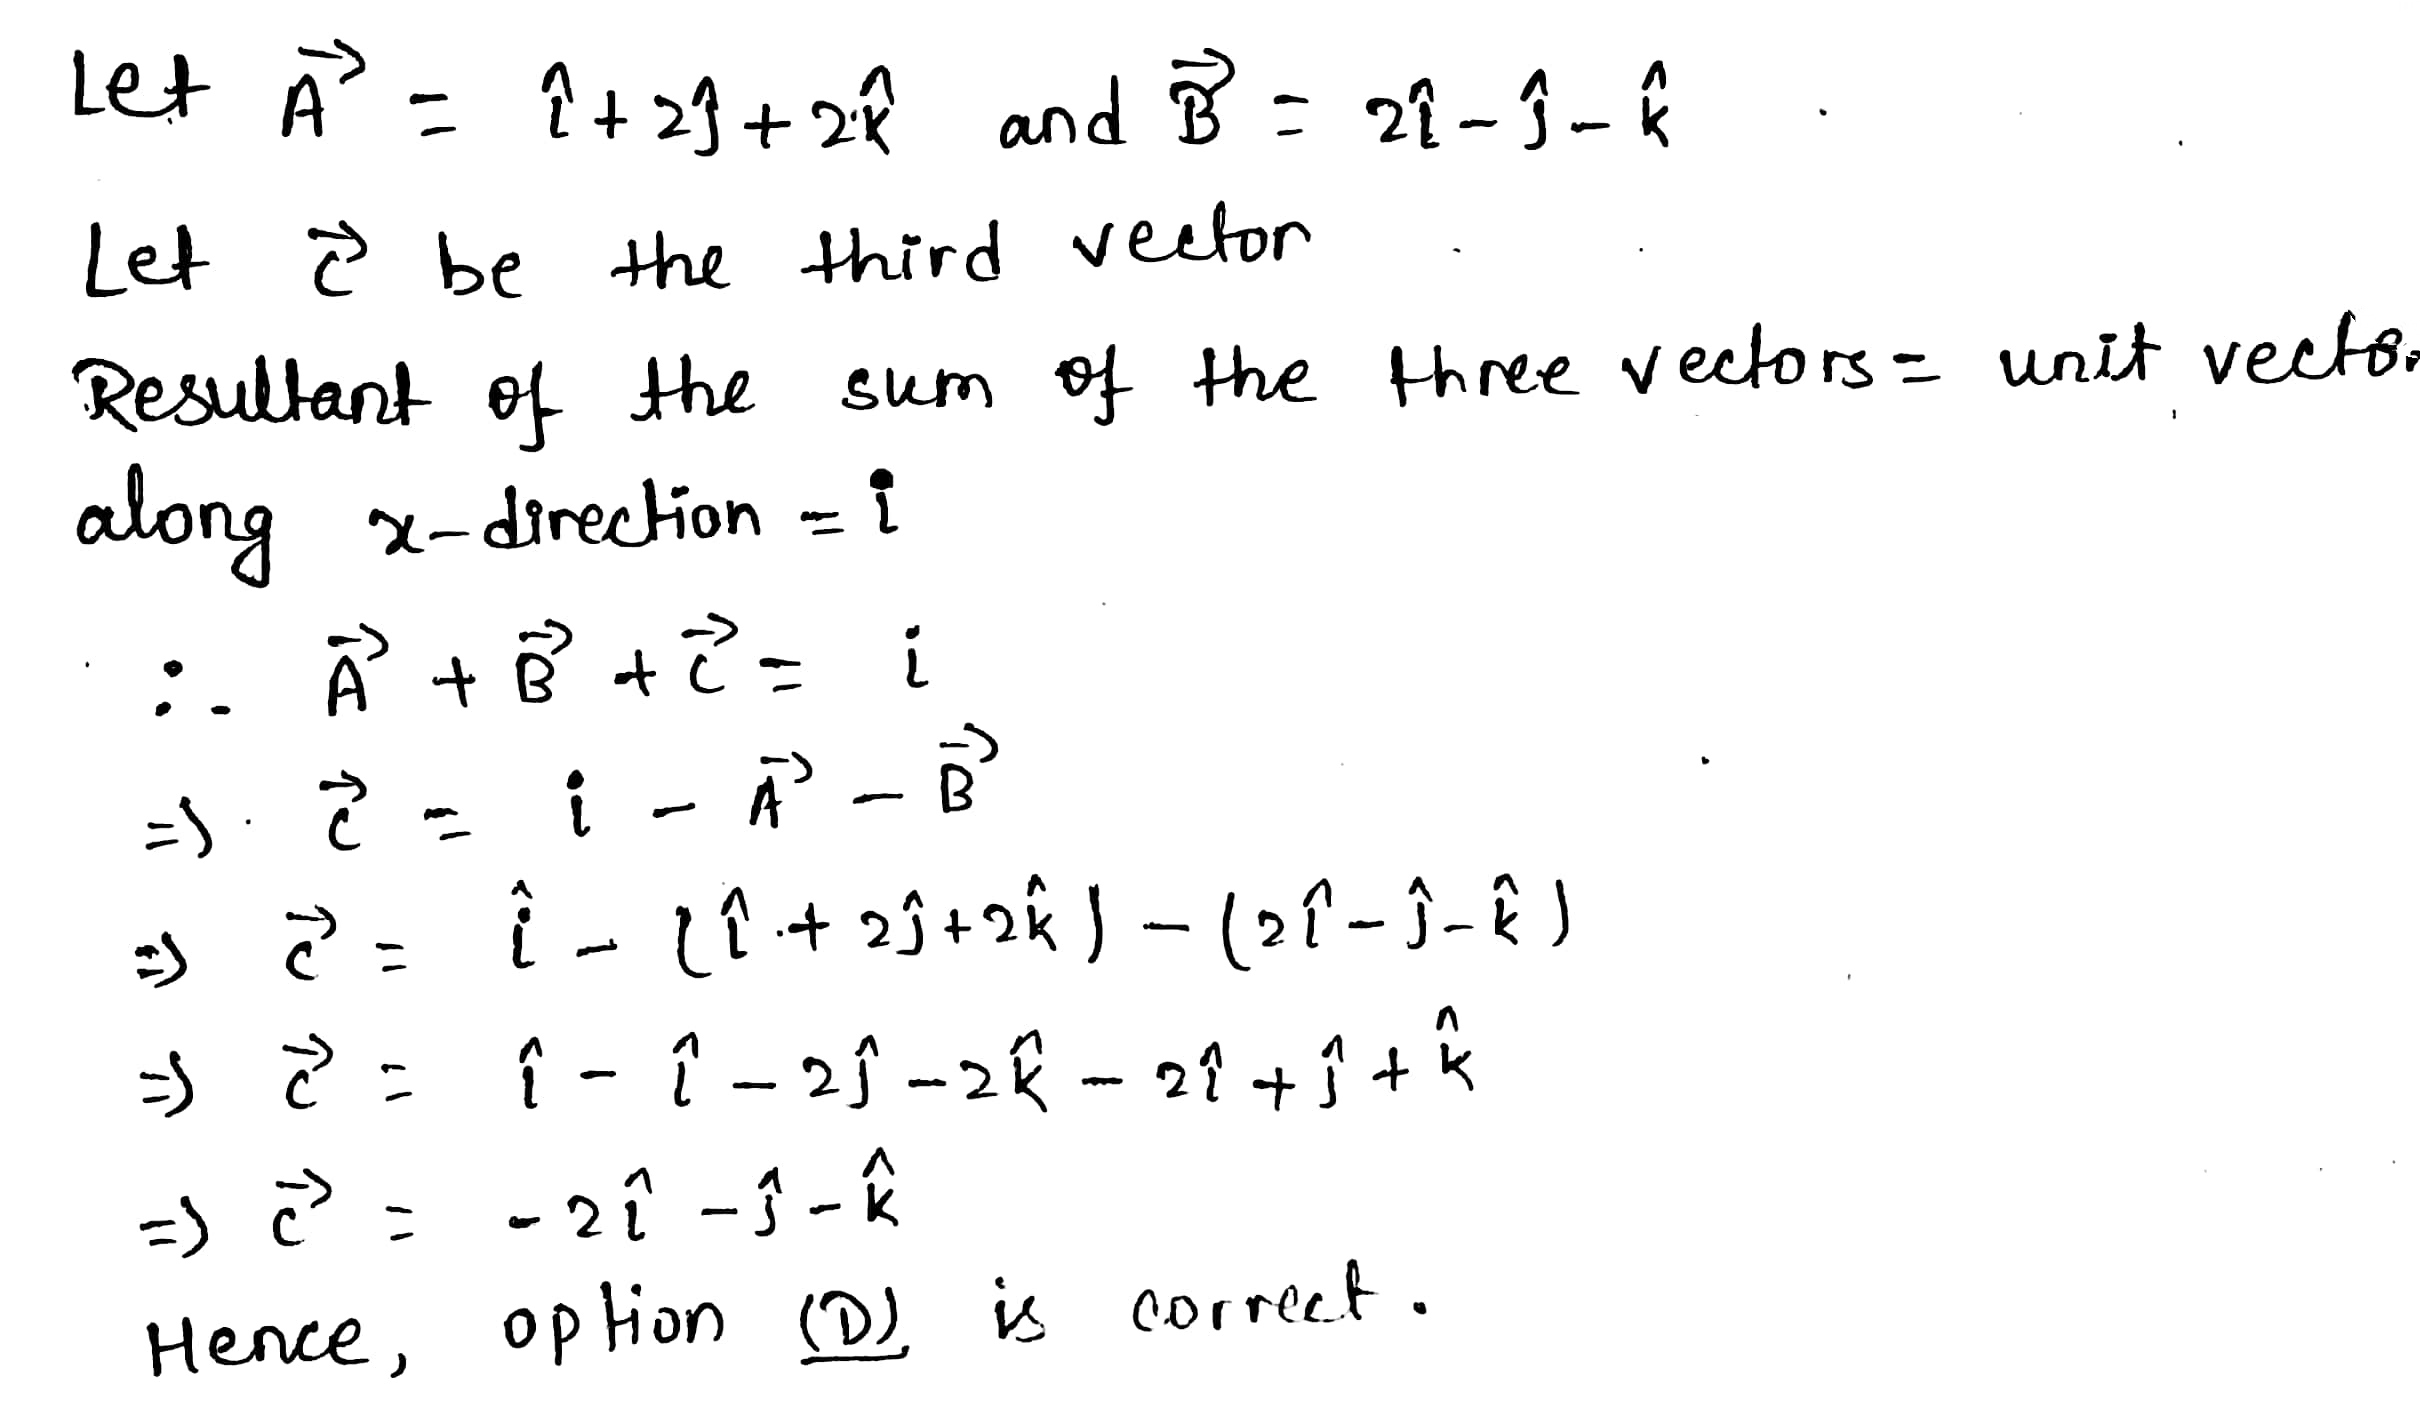 Let A⃗ = î + 2ĵ + 2k̂ and B⃗ = 2î - ĵ - k̂
Let c⃗ be the third vector
Resultant of the sum of the three vectors = unit vector
along x-direction = i
∴ A⃗ + B⃗ + c⃗ = i
⇒ c⃗ = i - A⃗ - B⃗
⇒ c⃗ = î - (î + 2ĵ + 2k̂) - (2î - ĵ - k̂)
⇒ c⃗ = î - î - 2ĵ - 2k̂ - 2î + ĵ + k̂
⇒ c⃗ = -2î - ĵ - k̂
Hence, option (D) is correct.